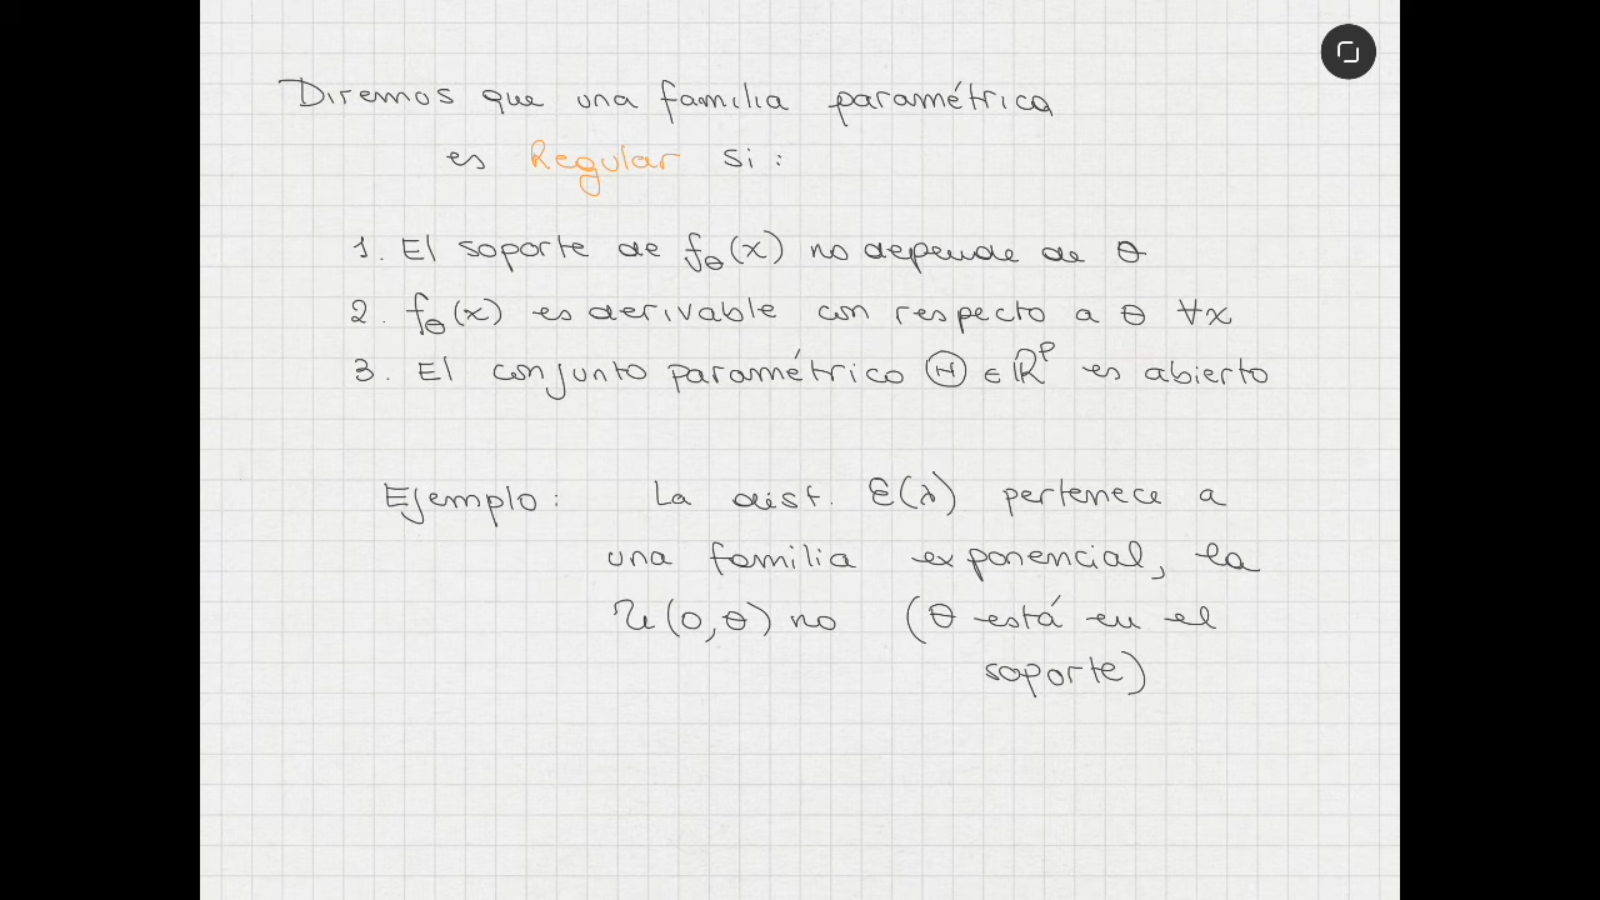 Diremos que una familia paramétrica
es Regular si:
1. El soporte de fθ(x) no depende de θ
2. fθ(x) es derivable con respecto a θ ∀x
3. El conjunto paramétrico Θ ∈ ℝᵖ es abierto
Ejemplo: La dist. ℰ(λ) pertenece a
una familia exponencial, la
𝒰(0,θ) no (θ está en el
soporte)